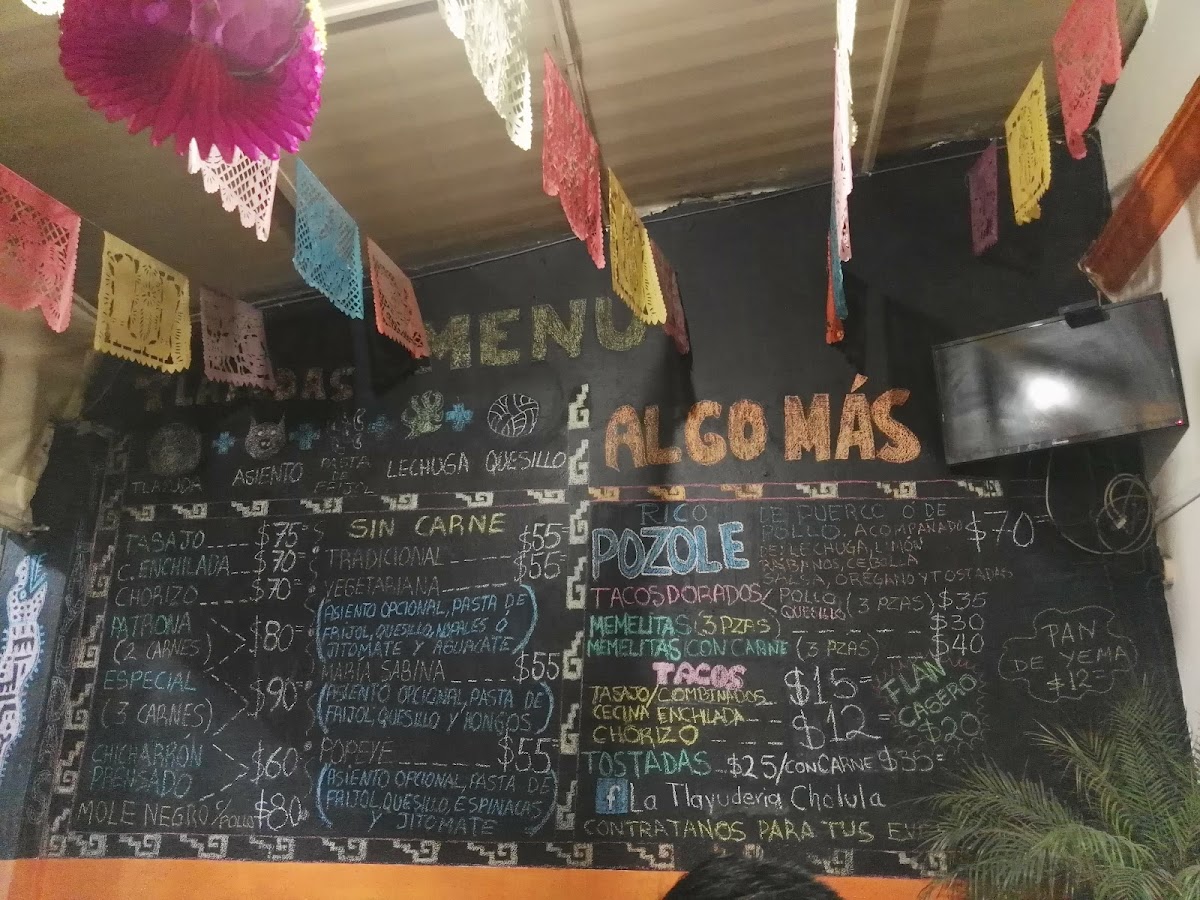 MENU
TLAYUDAS
TLAYUDA
ASIENTO
PASTA
DE
FRIJOL
LECHUGA
QUESILLO
TASAJO $75
C. ENCHILADA $70
CHORIZO $70
PATRONA
(2 CARNES) $80
ESPECIAL
(3 CARNES) $90
CHICHARRÓN
PRENSADO $60
MOLE NEGRO C/POLLO $80
SIN CARNE
TRADICIONAL $55
VEGETARIANA $55
(ASIENTO OPCIONAL, PASTA DE
FRIJOL, QUESILLO, NOPALES Ó
JITOMATE Y AGUACATE)
MARÍA SABINA $55
(ASIENTO OPCIONAL, PASTA DE
FRIJOL, QUESILLO Y HONGOS)
POPEYE $55
(ASIENTO OPCIONAL, PASTA DE
FRIJOL, QUESILLO, ESPINACAS
Y JITOMATE)
ALGO MÁS
RICO
POZOLE
DE PUERCO O DE
POLLO, ACOMPAÑADO
DE: LECHUGA, LIMÓN
RÁBANOS, CEBOLLA
SALSA, ORÉGANO Y TOSTADAS
$70
TACOS DORADOS/ POLLO
QUESILLO (3 PZAS) $35
MEMELITAS (3 PZAS) $30
MEMELITAS CON CARNE (3 PZAS) $40
TACOS
TASAJO/COMBINADOS $15
CECINA ENCHILADA
CHORIZO $12
TOSTADAS $25/CON CARNE $35
FLAN
CASERO
$20
PAN
DE YEMA
$12
f La Tlayuderia Cholula
CONTRATANOS PARA TUS EVE